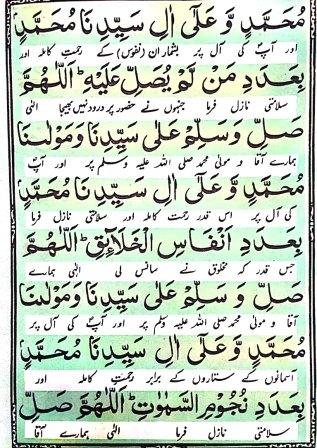 مُحَمَّدٍ وَّعَلٰٓى اٰلِ سَيِّدِنَا مُحَمَّدٍ
اور آپؐ کی آل پر بیشماران (نفوس) کے رحمتِ کاملہ اور
بِعَدَدِ مَنْ لَّمْ يُصَلِّ عَلَيْهِ ؕ اَللّٰهُمَّ
سلامتی نازل فرما جنہوں نے حضور پر درود نہیں بھیجا الٰہی
صَلِّ وَسَلِّمْ عَلٰى سَيِّدِنَا وَمَوْلٰىنَا
ہمارے آقا و مولیٰ محمد صلی اللہ علیہ وسلم پر اور آپؐ
مُحَمَّدٍ وَّعَلٰٓى اٰلِ سَيِّدِنَا مُحَمَّدٍ
کی آل پر اس قدر رحمت کاملہ اور سلامتی نازل فرما
بِعَدَدِ اَنْفَاسِ الْخَلَآئِقِ ؕ اَللّٰهُمَّ
جس قدر کہ مخلوق نے سانس لی الٰہی ہمارے
صَلِّ وَسَلِّمْ عَلٰى سَيِّدِنَا وَمَوْلٰىنَا
آقا و مولیٰ محمد صلی اللہ علیہ وسلم پر اور آپؐ کی آل پر
مُحَمَّدٍ وَّعَلٰٓى اٰلِ سَيِّدِنَا مُحَمَّدٍ
آسمانوں کے ستاروں کے برابر رحمتِ کاملہ اور
بِعَدَدِ نُجُوْمِ السَّمٰوٰتِ ؕ اَللّٰهُمَّ صَلِّ
سلامتی نازل فرما الٰہی ہمارے آقا